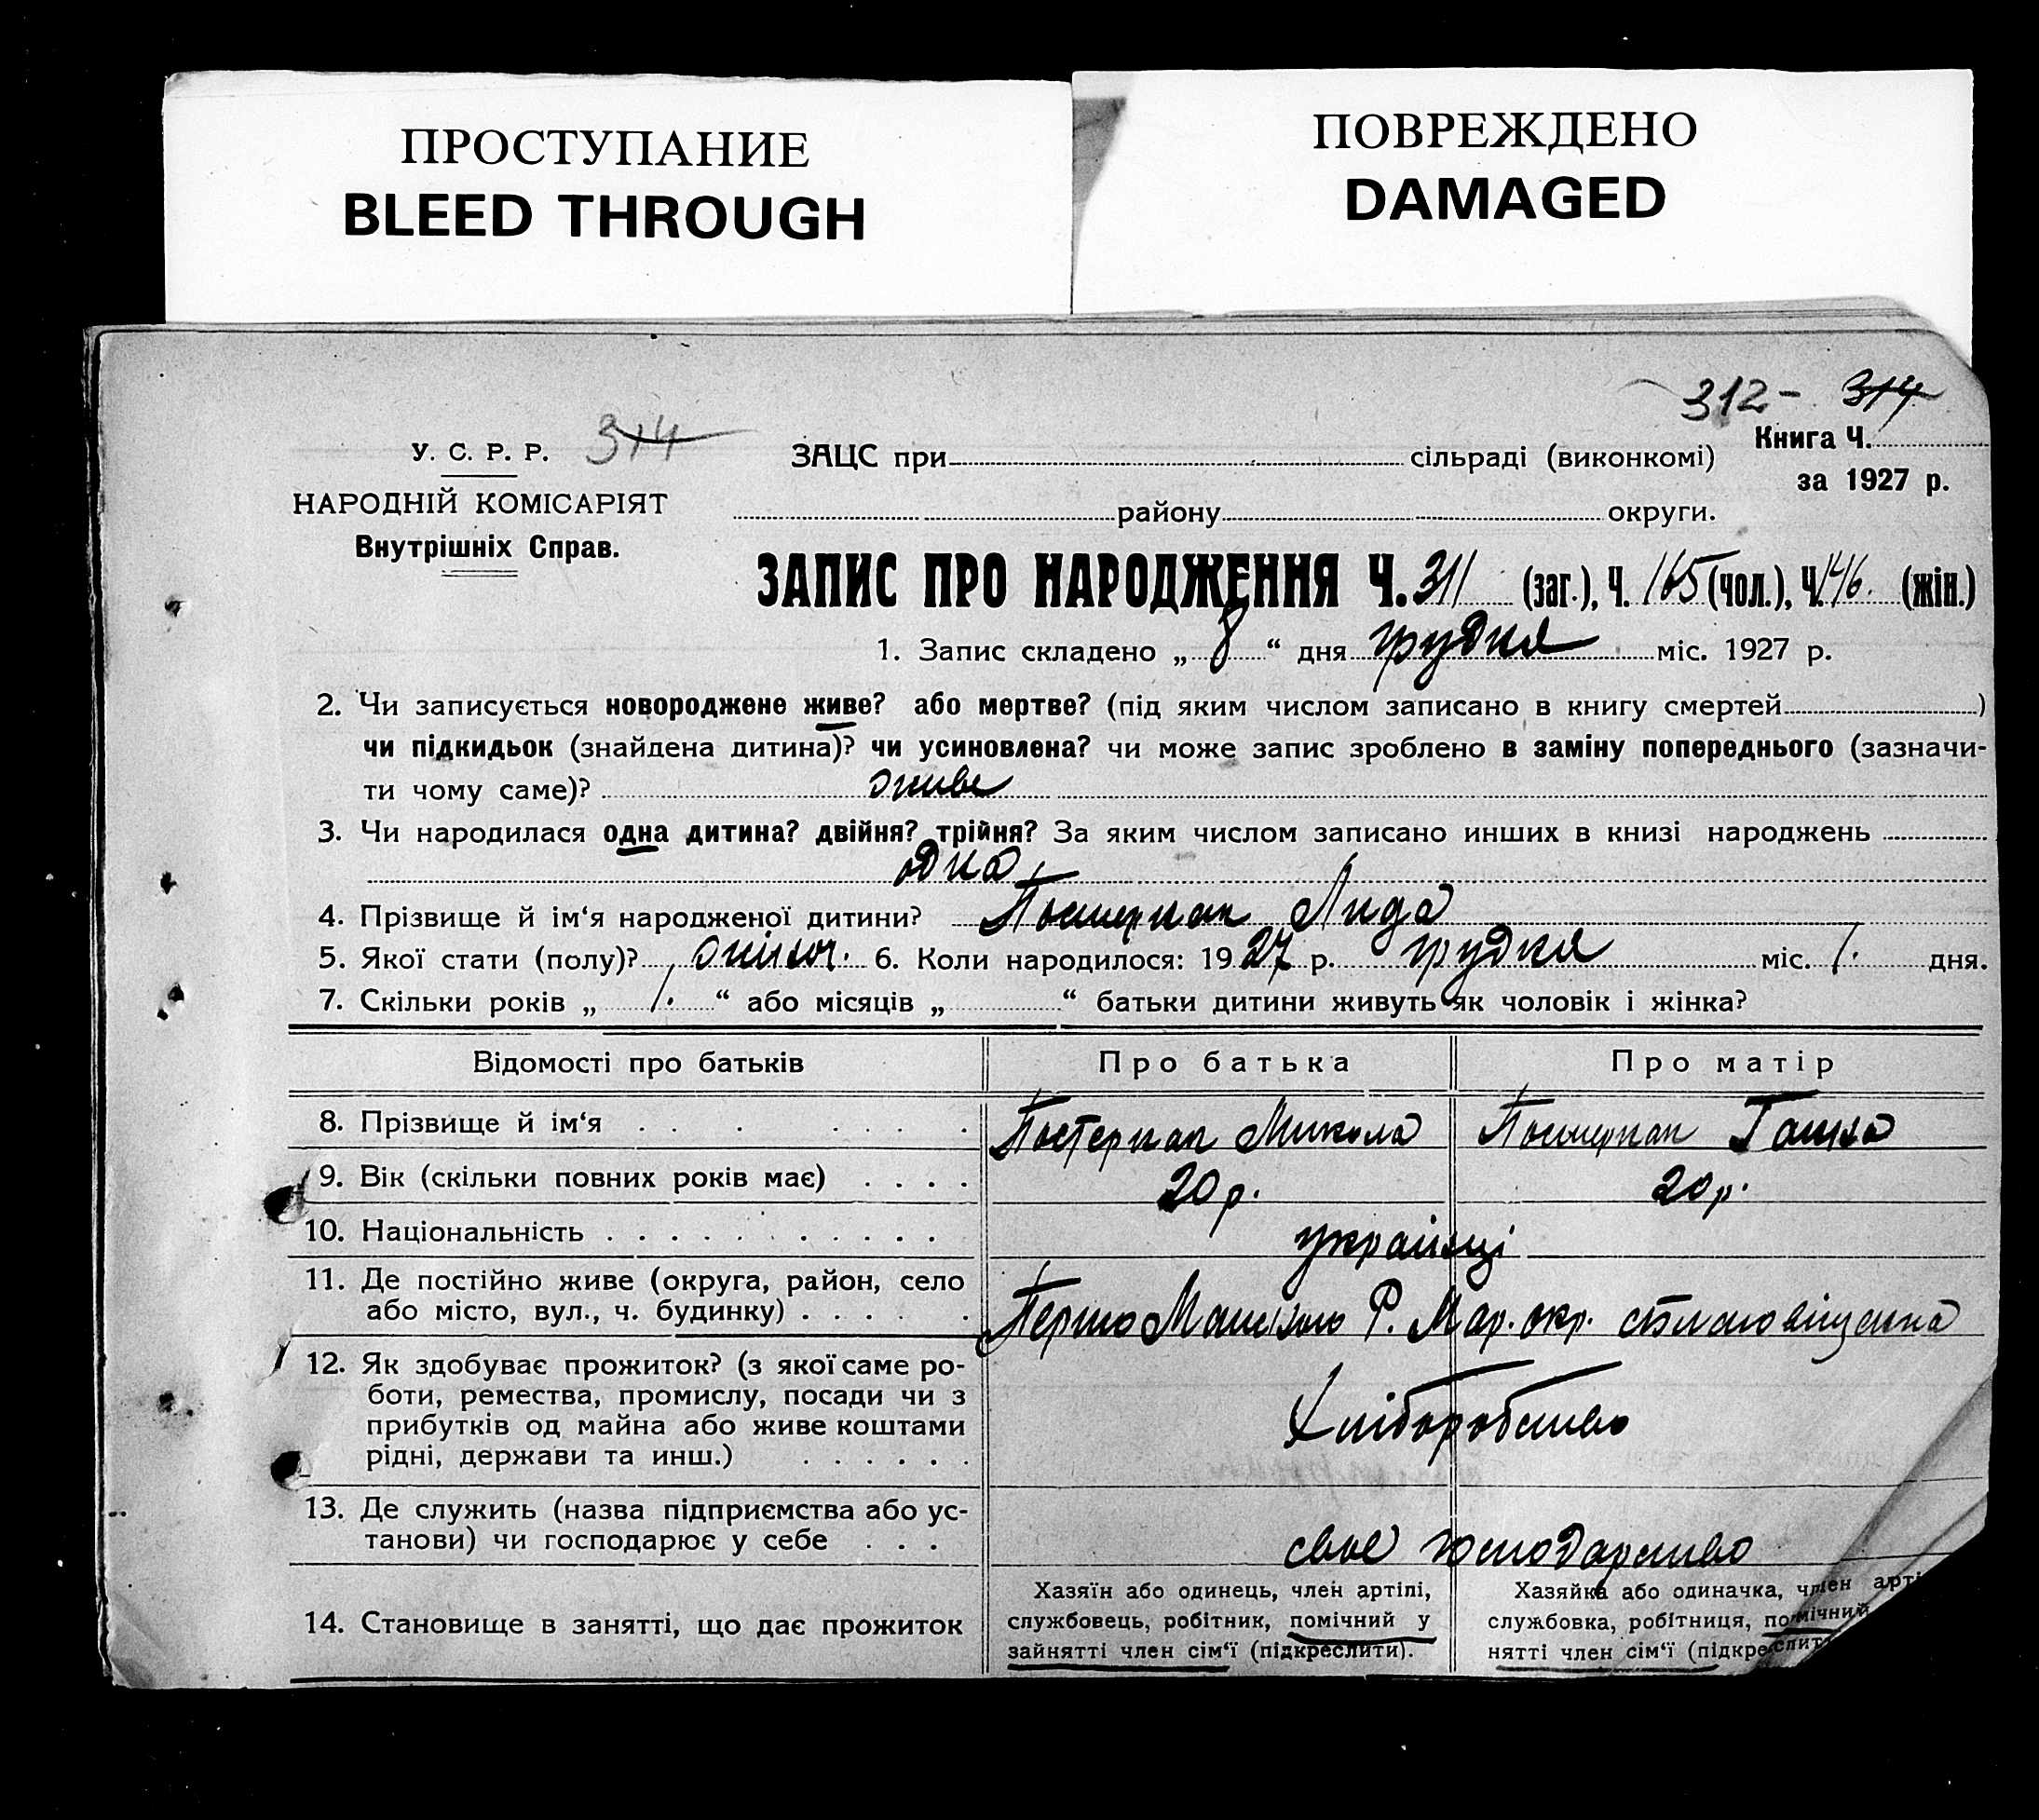 ПРОСТУПАНИЕ
BLEED THROUGH
ПОВРЕЖДЕНО
DAMAGED
312- 314
У. С. Р. Р. 314
ЗАЦС при сільраді (виконкомі) Книга Ч.
за 1927 р.
НАРОДНІЙ КОМІСАРІЯТ
району округи.
Внутрішніх Справ.
ЗАПИС ПРО НАРОДЖЕННЯ Ч. 311 (заг.), Ч. 165 (чол.), Ч. 146. (жін.)
1. Запис складено „ 8 “ дня грудня міс. 1927 р.
2. Чи записується новороджене живе? або мертве? (під яким числом записано в книгу смертей )
чи підкидьок (знайдена дитина)? чи усиновлена? чи може запис зроблено в заміну попереднього (зазначи-
ти чому саме)? живе
3. Чи народилася одна дитина? двійня? трійня? За яким числом записано инших в книзі народжень
одна
4. Прізвище й ім‘я народженої дитини? Постернак Лида
5. Якої стати (полу)? жіноч. 6. Коли народилося: 1927 р. грудня міс. 1. дня.
7. Скільки років „ 1. “ або місяців „ “ батьки дитини живуть як чоловік і жінка?
Відомості про батьків Про батька Про матір
8. Прізвище й ім‘я Постернак Микола Постернак Ганна
9. Вік (скільки повних років має) 20 р. 20 р.
10. Національність українці
11. Де постійно живе (округа, район, село
або місто, вул., ч. будинку) Мар. окр.
12. Як здобуває прожиток? (з якої саме ро-
боти, ремества, промислу, посади чи з
прибутків од майна або живе коштами
рідні, держави та инш.) Хліборобство
13. Де служить (назва підприємства або ус-
танови) чи господарює у себе своє господарство
14. Становище в занятті, що дає прожиток
Хазяїн або одинець, член артілі,
службовець, робітник, помічний у
зайнятті член сім‘ї (підкреслити).
Хазяйка або одиначка, член арті
службовка, робітниця, помічний
нятті член сім‘ї (підкреслит